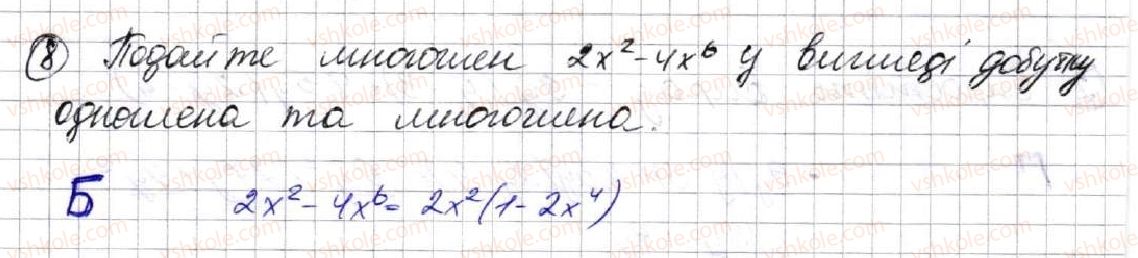 ⑧ Подайте многочлен 2x² - 4x⁶ у вигляді добутку
одночлена та многочлена.
Б 2x² - 4x⁶ = 2x²(1 - 2x⁴)